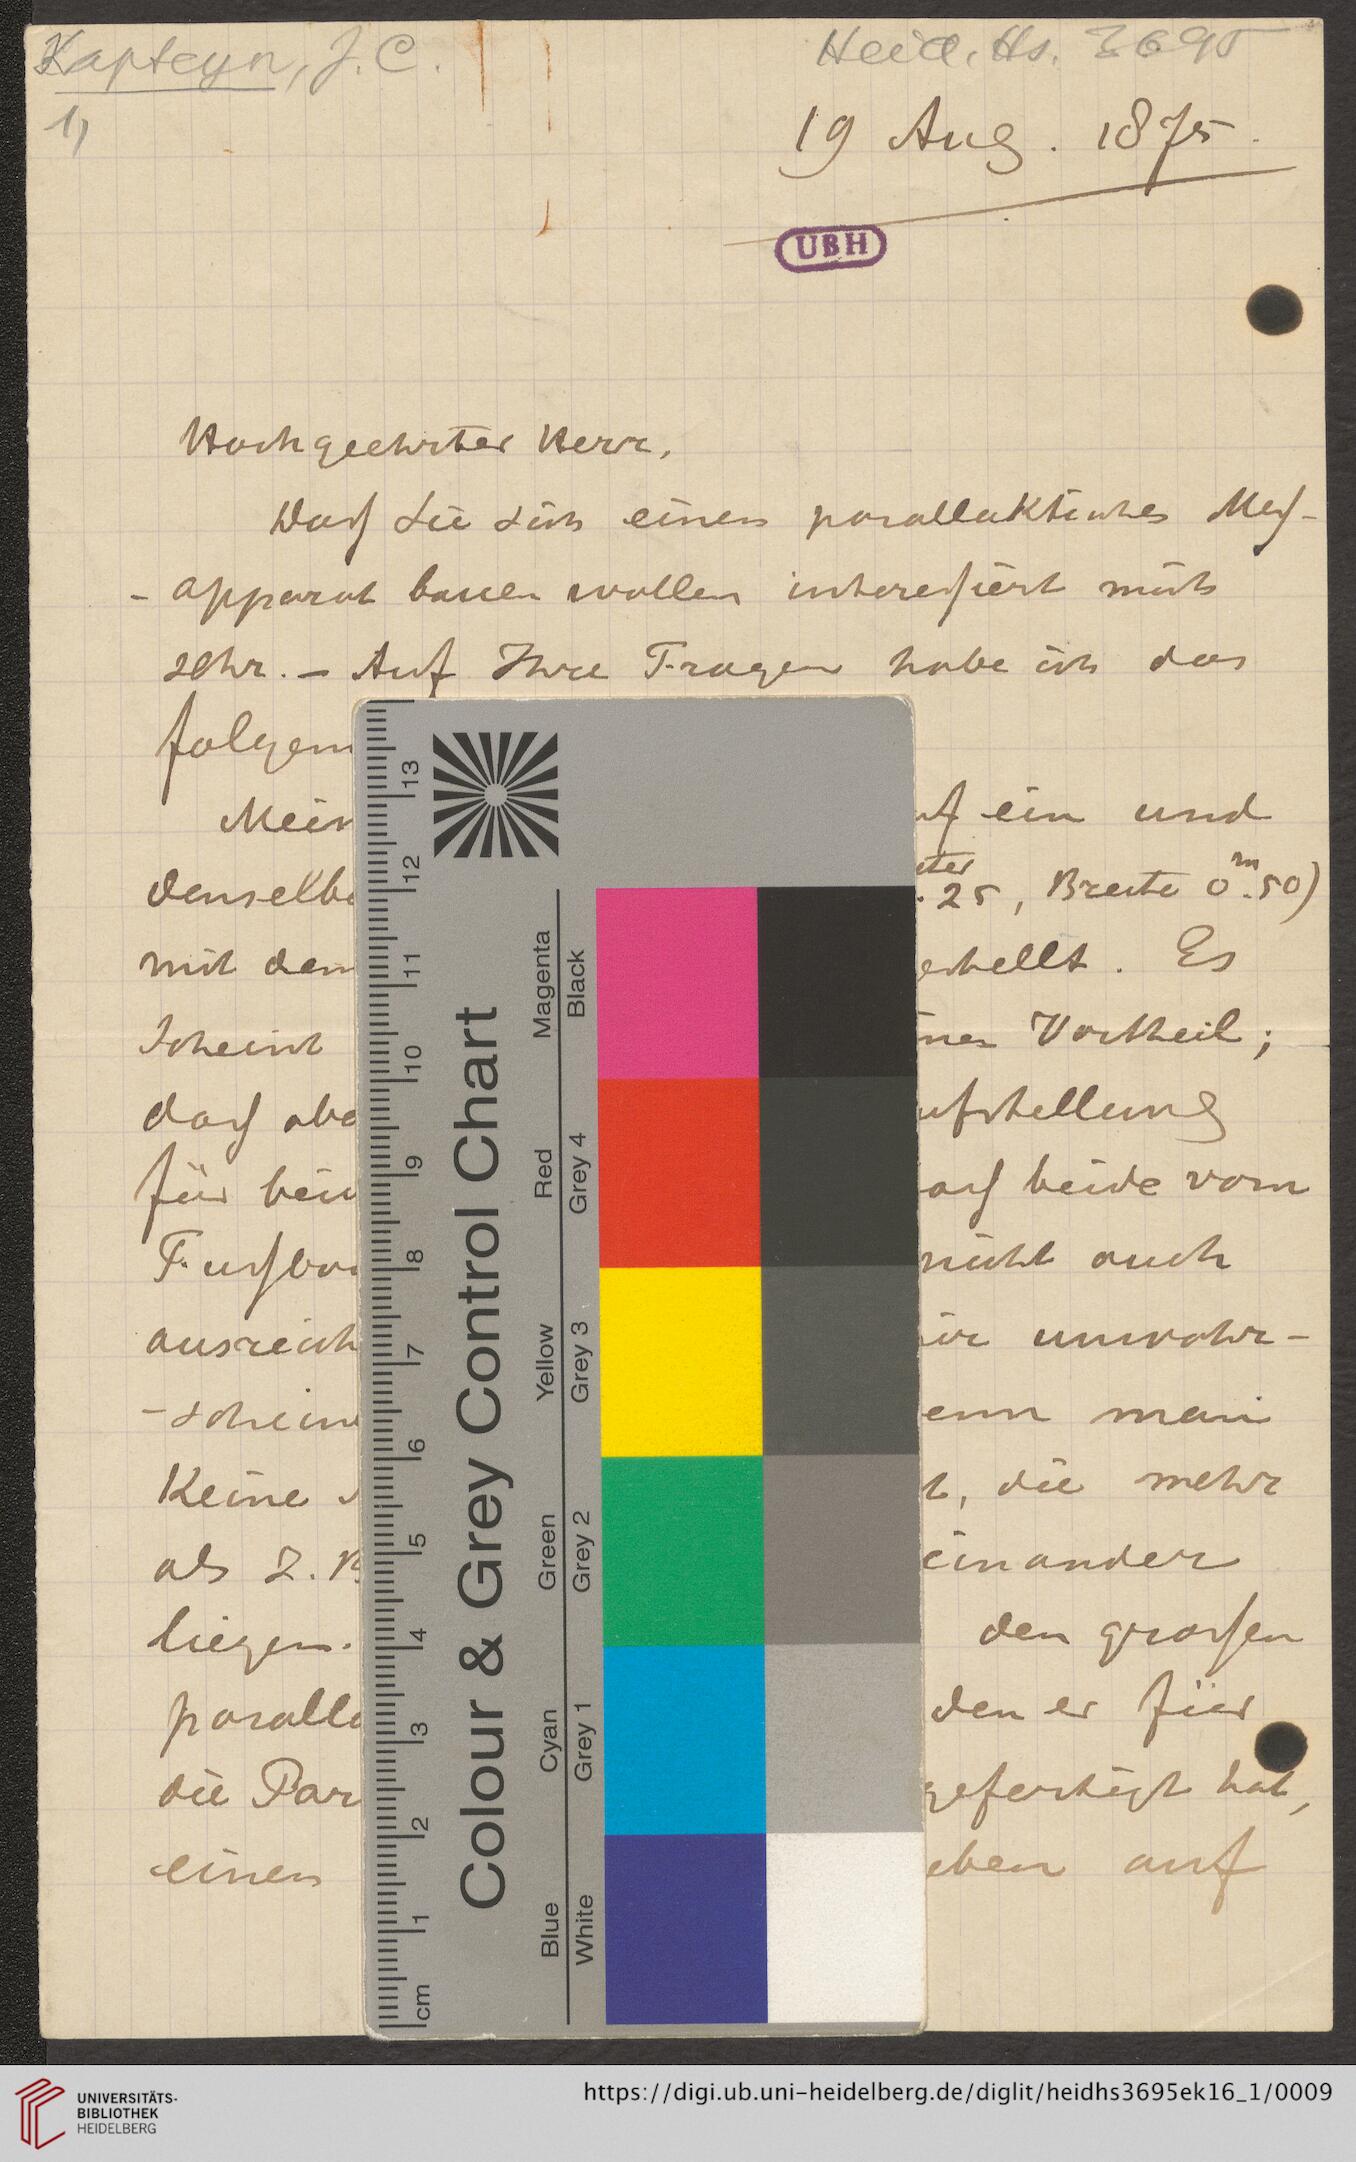 Kapteyn, J. C.
Heid. Hs. 3695
1)
19 Aug. 1875.
UBH
Hochgeehrter Herr,
Dass Sie sich einen parallaktisches Mess-
-apparat bauen wollen interessiert mich
sehr. – Auf Ihre Fragen habe ich das
folgen
Mein uf ein und
denselbe eter .25, Breite 0.50) m
mit dem estellt. Es
scheint nen Vortheil;
dass abe ufstellung
für beid ass beide vom
Fussbo nicht auch
ausreich ir unwahr-
-schein enn man
Keine t, die mehr
als Z. B einander
liegen. den grossen
paralla den er für
die Par gefertigt hat,
einen eben auf
Colour & Grey Control Chart
Magenta Black
Red Grey 4
Yellow Grey 3
Green Grey 2
Cyan Grey 1
Blue White
13
12
11
10
9
8
7
6
5
4
3
2
1
cm
UNIVERSITÄTS-
BIBLIOTHEK
HEIDELBERG
https://digi.ub.uni-heidelberg.de/diglit/heidhs3695ek16_1/0009